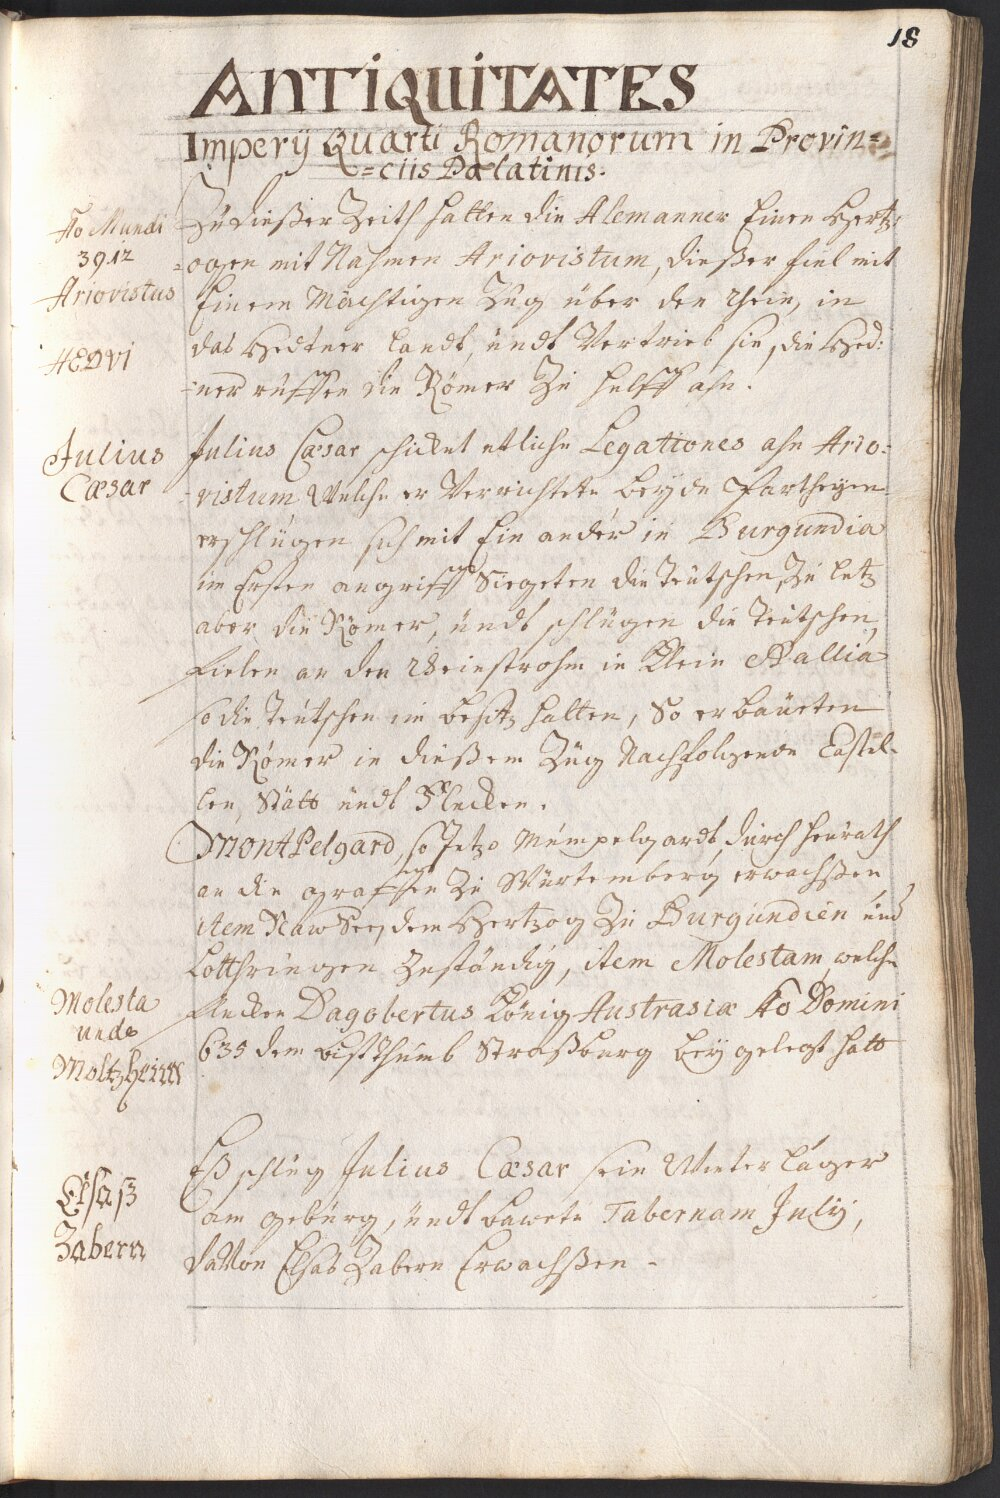 18
ANTIQUITATES
Imperÿ Quarti Romanorum in Provin=
=ciis Palatinis.
Ao Mundi
3912
Ariovistus
Zu dießer Zeith hatten die Alemanner Einen Hertz=
=ogen mit Nahmen Ariovistum, dießer fiel mit
Einem Mächtigen Zug über den Rhein, in
HEDVI
das Hedtner Landt, undt Vertrieb sie, die Hed:
=ner ruffen die Römer Zu hülff ahn.
Julius
Cæsar
Julius Cæsar schicket etliche Legationes ahn Ario:
=vistum, Welche er Verrichtete beÿde Partheÿen
erschlugen sich mit Ein ander in Burgundia
im Ersten angriff Siegeten die Teutschen, Zu letz
aber die Römer, undt schlugen die Teutschen,
fielen an den Rheinstrohm in Klein Gallia
so die Teutschen im besitz hatten, So erbaueten
die Römer in dießem Zug Nachfolgende Castel=
len, Stätt undt Flecken.
Mont Pelgard, so Jetzo Mümpelgardt, durch heurath
an die graffen Zu Würtemberg erwachßen,
item Naw See, dem Hertzog Zu Burgundien und
Lotthringen Zuständig, item Molestam, welche
Molesta
undt
Moltzheim
flecken Dagobertus König Austrasiæ Ao Domini
635 dem Bisthumb Straßburg beÿ gelegt hatt
Elsaß
Zabern
Eß schlug Julius Cæsar sein Winter läger
am gebürg, undt bawete Tabernam Julÿ,
daVon Elsas Zabern Erwachßen.